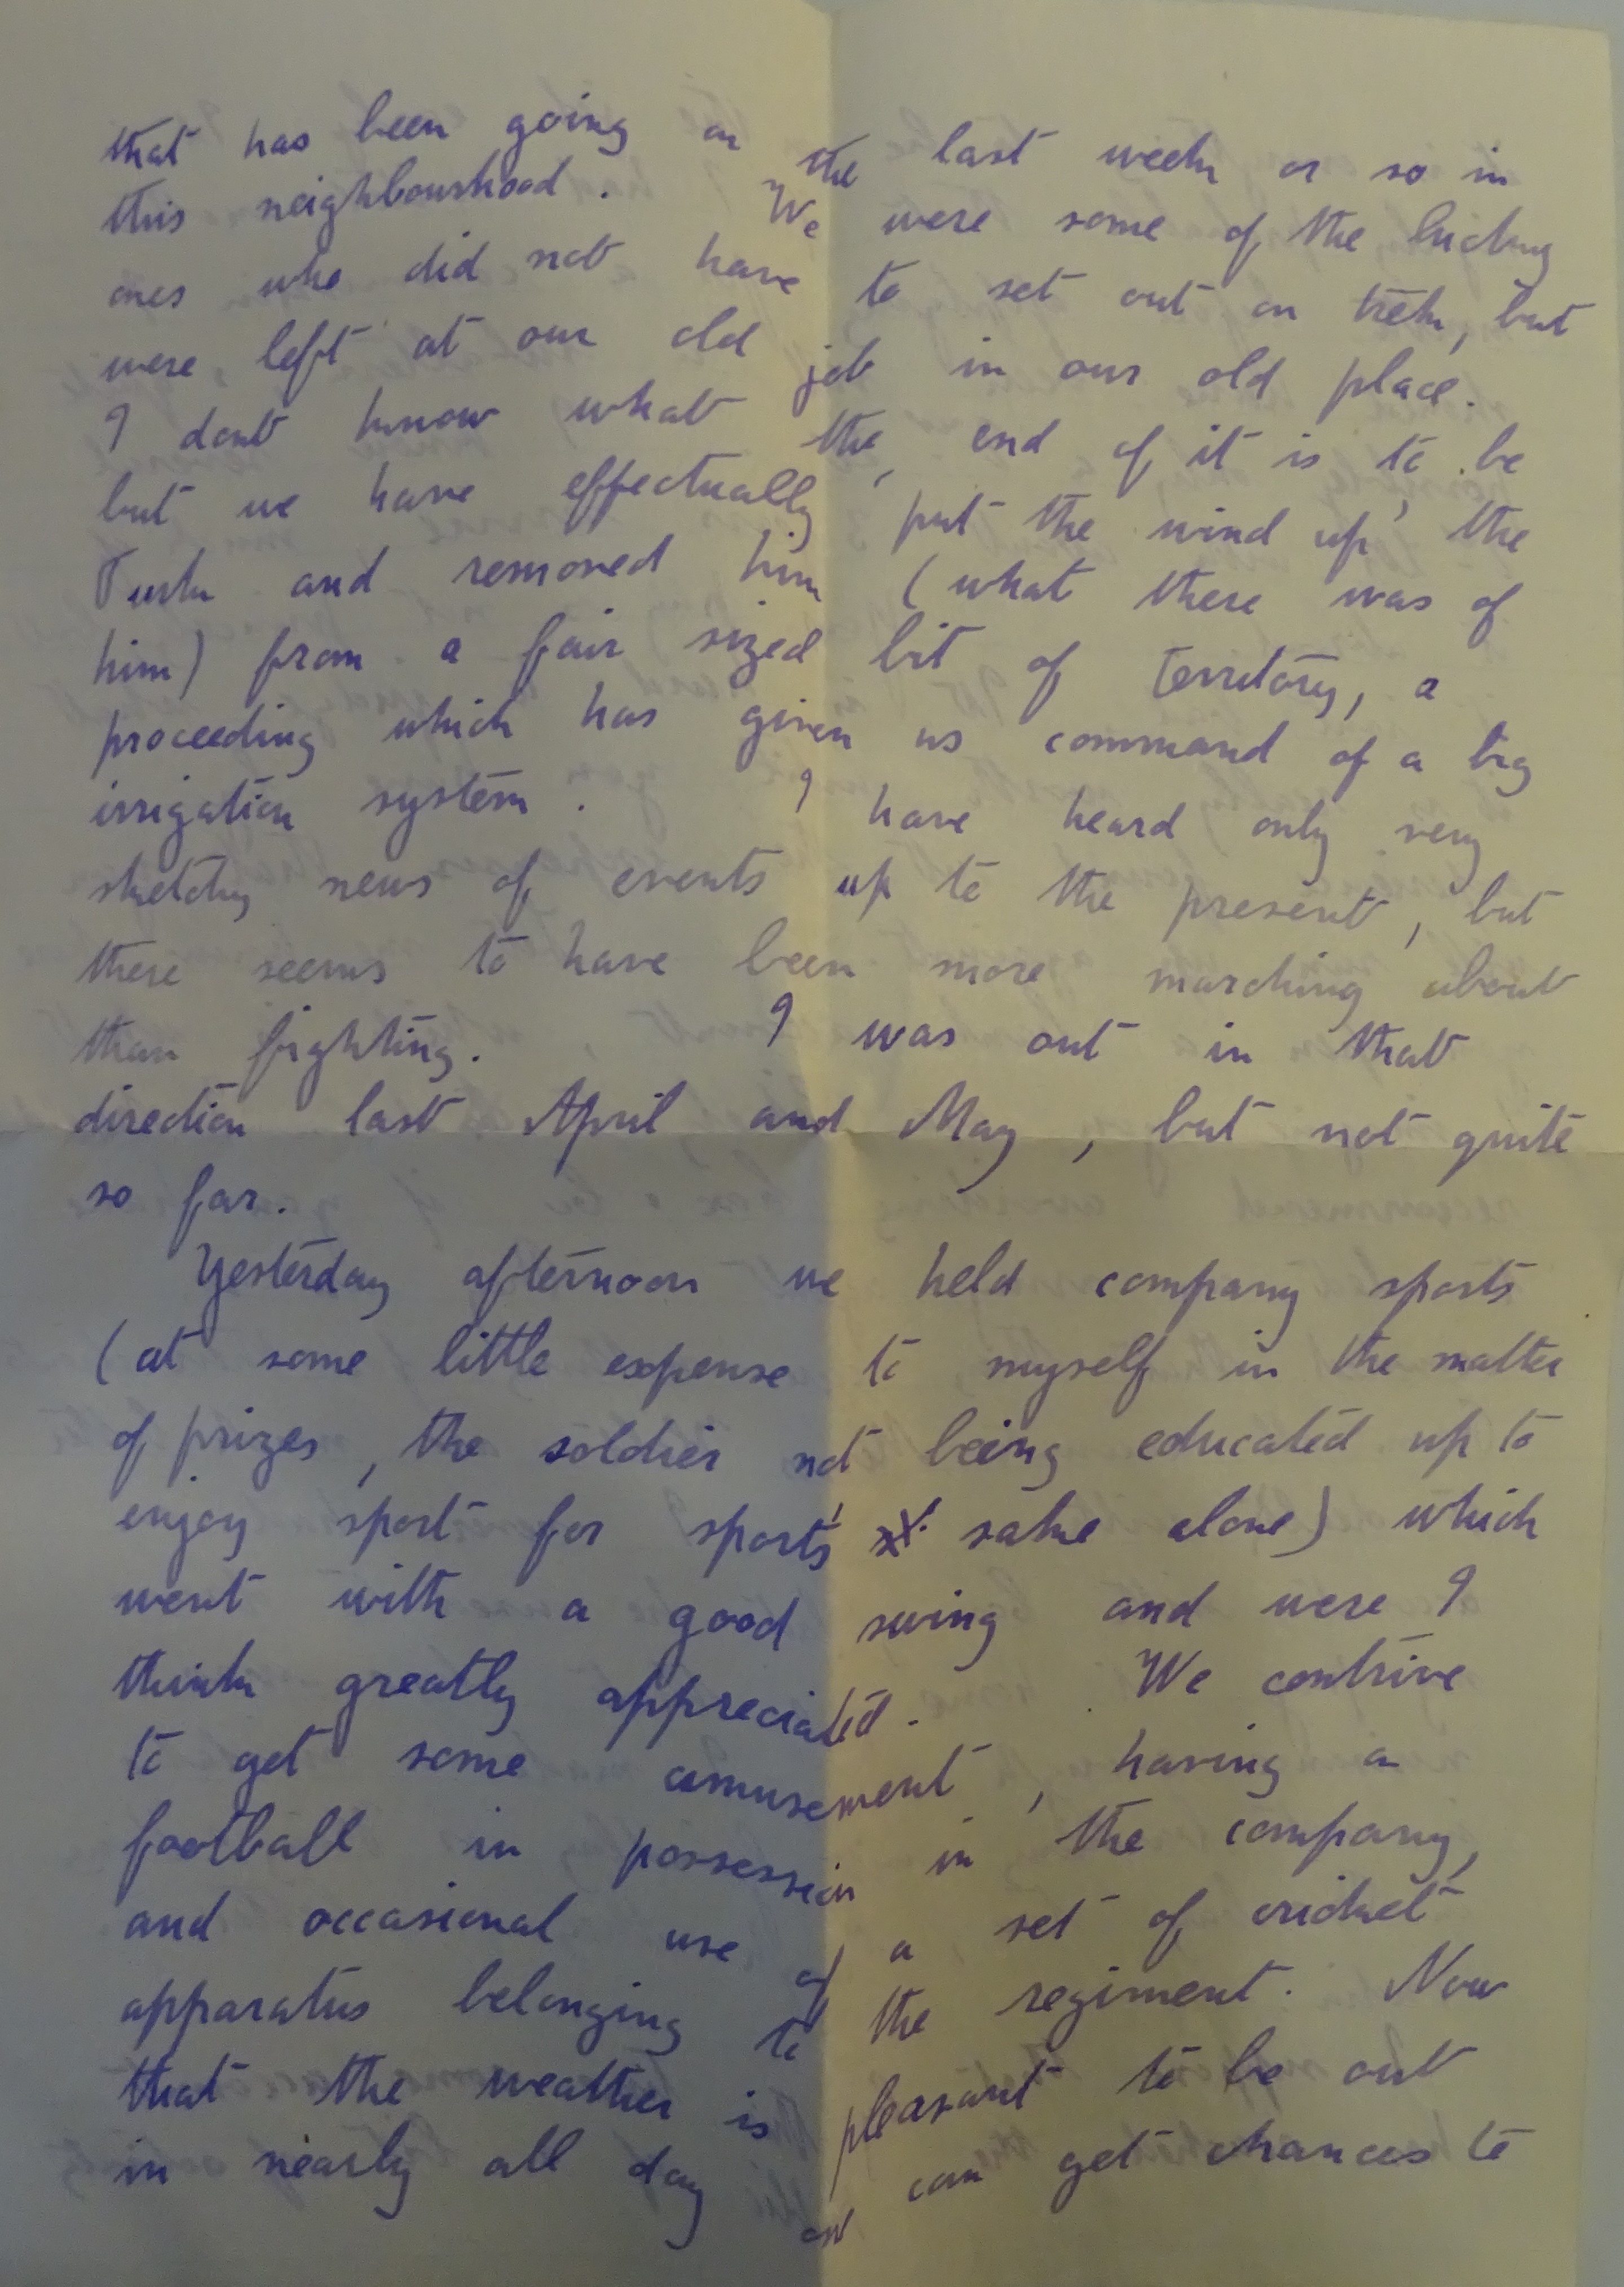 that has been going on the last week or so in
this neighbourhood. We were some of the lucky
ones who did not have to set out on trek, but
were left at our old job in our old place.
I dont know what the end of it is to be
but we have effectually 'put the wind up' the
Turk and removed him (what there was of
him) from a fair sized bit of territory, a
proceeding which has given us command of a big
irrigation system. I have heard only very
sketchy news of events up to the present, but
there seems to have been more marching about
than fighting. I was out in that
direction last April and May, but not quite
so far.
Yesterday afternoon we held company sports
(at some little expense to myself in the matter
of prizes, the soldier not being educated up to
enjoy sport for sport's sake alone) which
went with a good swing and were I
think greatly appreciated. We contrive
to get some amusement, having a
football in possession in the company,
and occasional use of a set of cricket
apparatus belonging to the regiment. Now
that the weather is pleasant to be out
in nearly all day one can get chances to